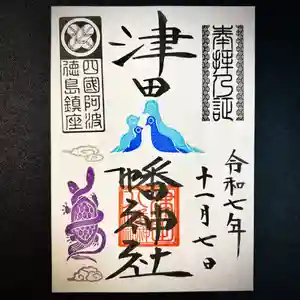 奉拝乃証
令和七年
十一月七日
津田
幡神社
四國阿波
徳島鎮座